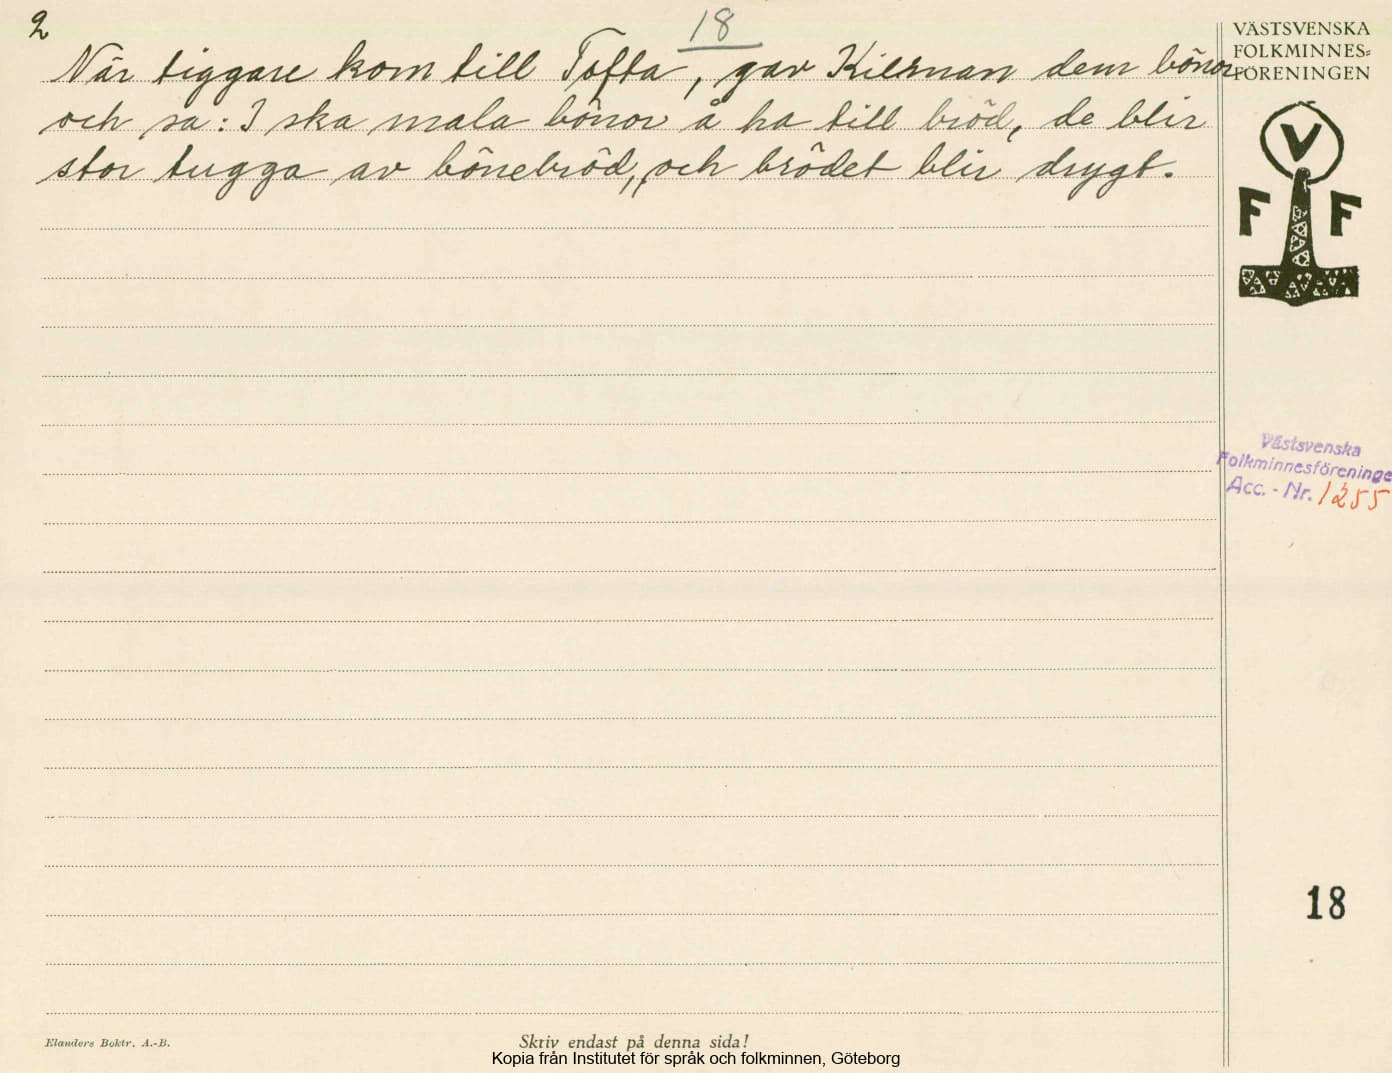 2
18
När tiggare kom till Tofta, gav Kilsman dem bönor
och sa: I ska mala bönor å ha till bröd, de blir
stor tugga av bönebröd, och brödet blir drygt.
VÄSTSVENSKA
FOLKMINNES-
FÖRENINGEN
V
F F
Västsvenska
Folkminnesföreninge
Acc. - Nr. 1255
18
Elanders Boktr. A.-B.
Skriv endast på denna sida!
Kopia från Institutet för språk och folkminnen, Göteborg